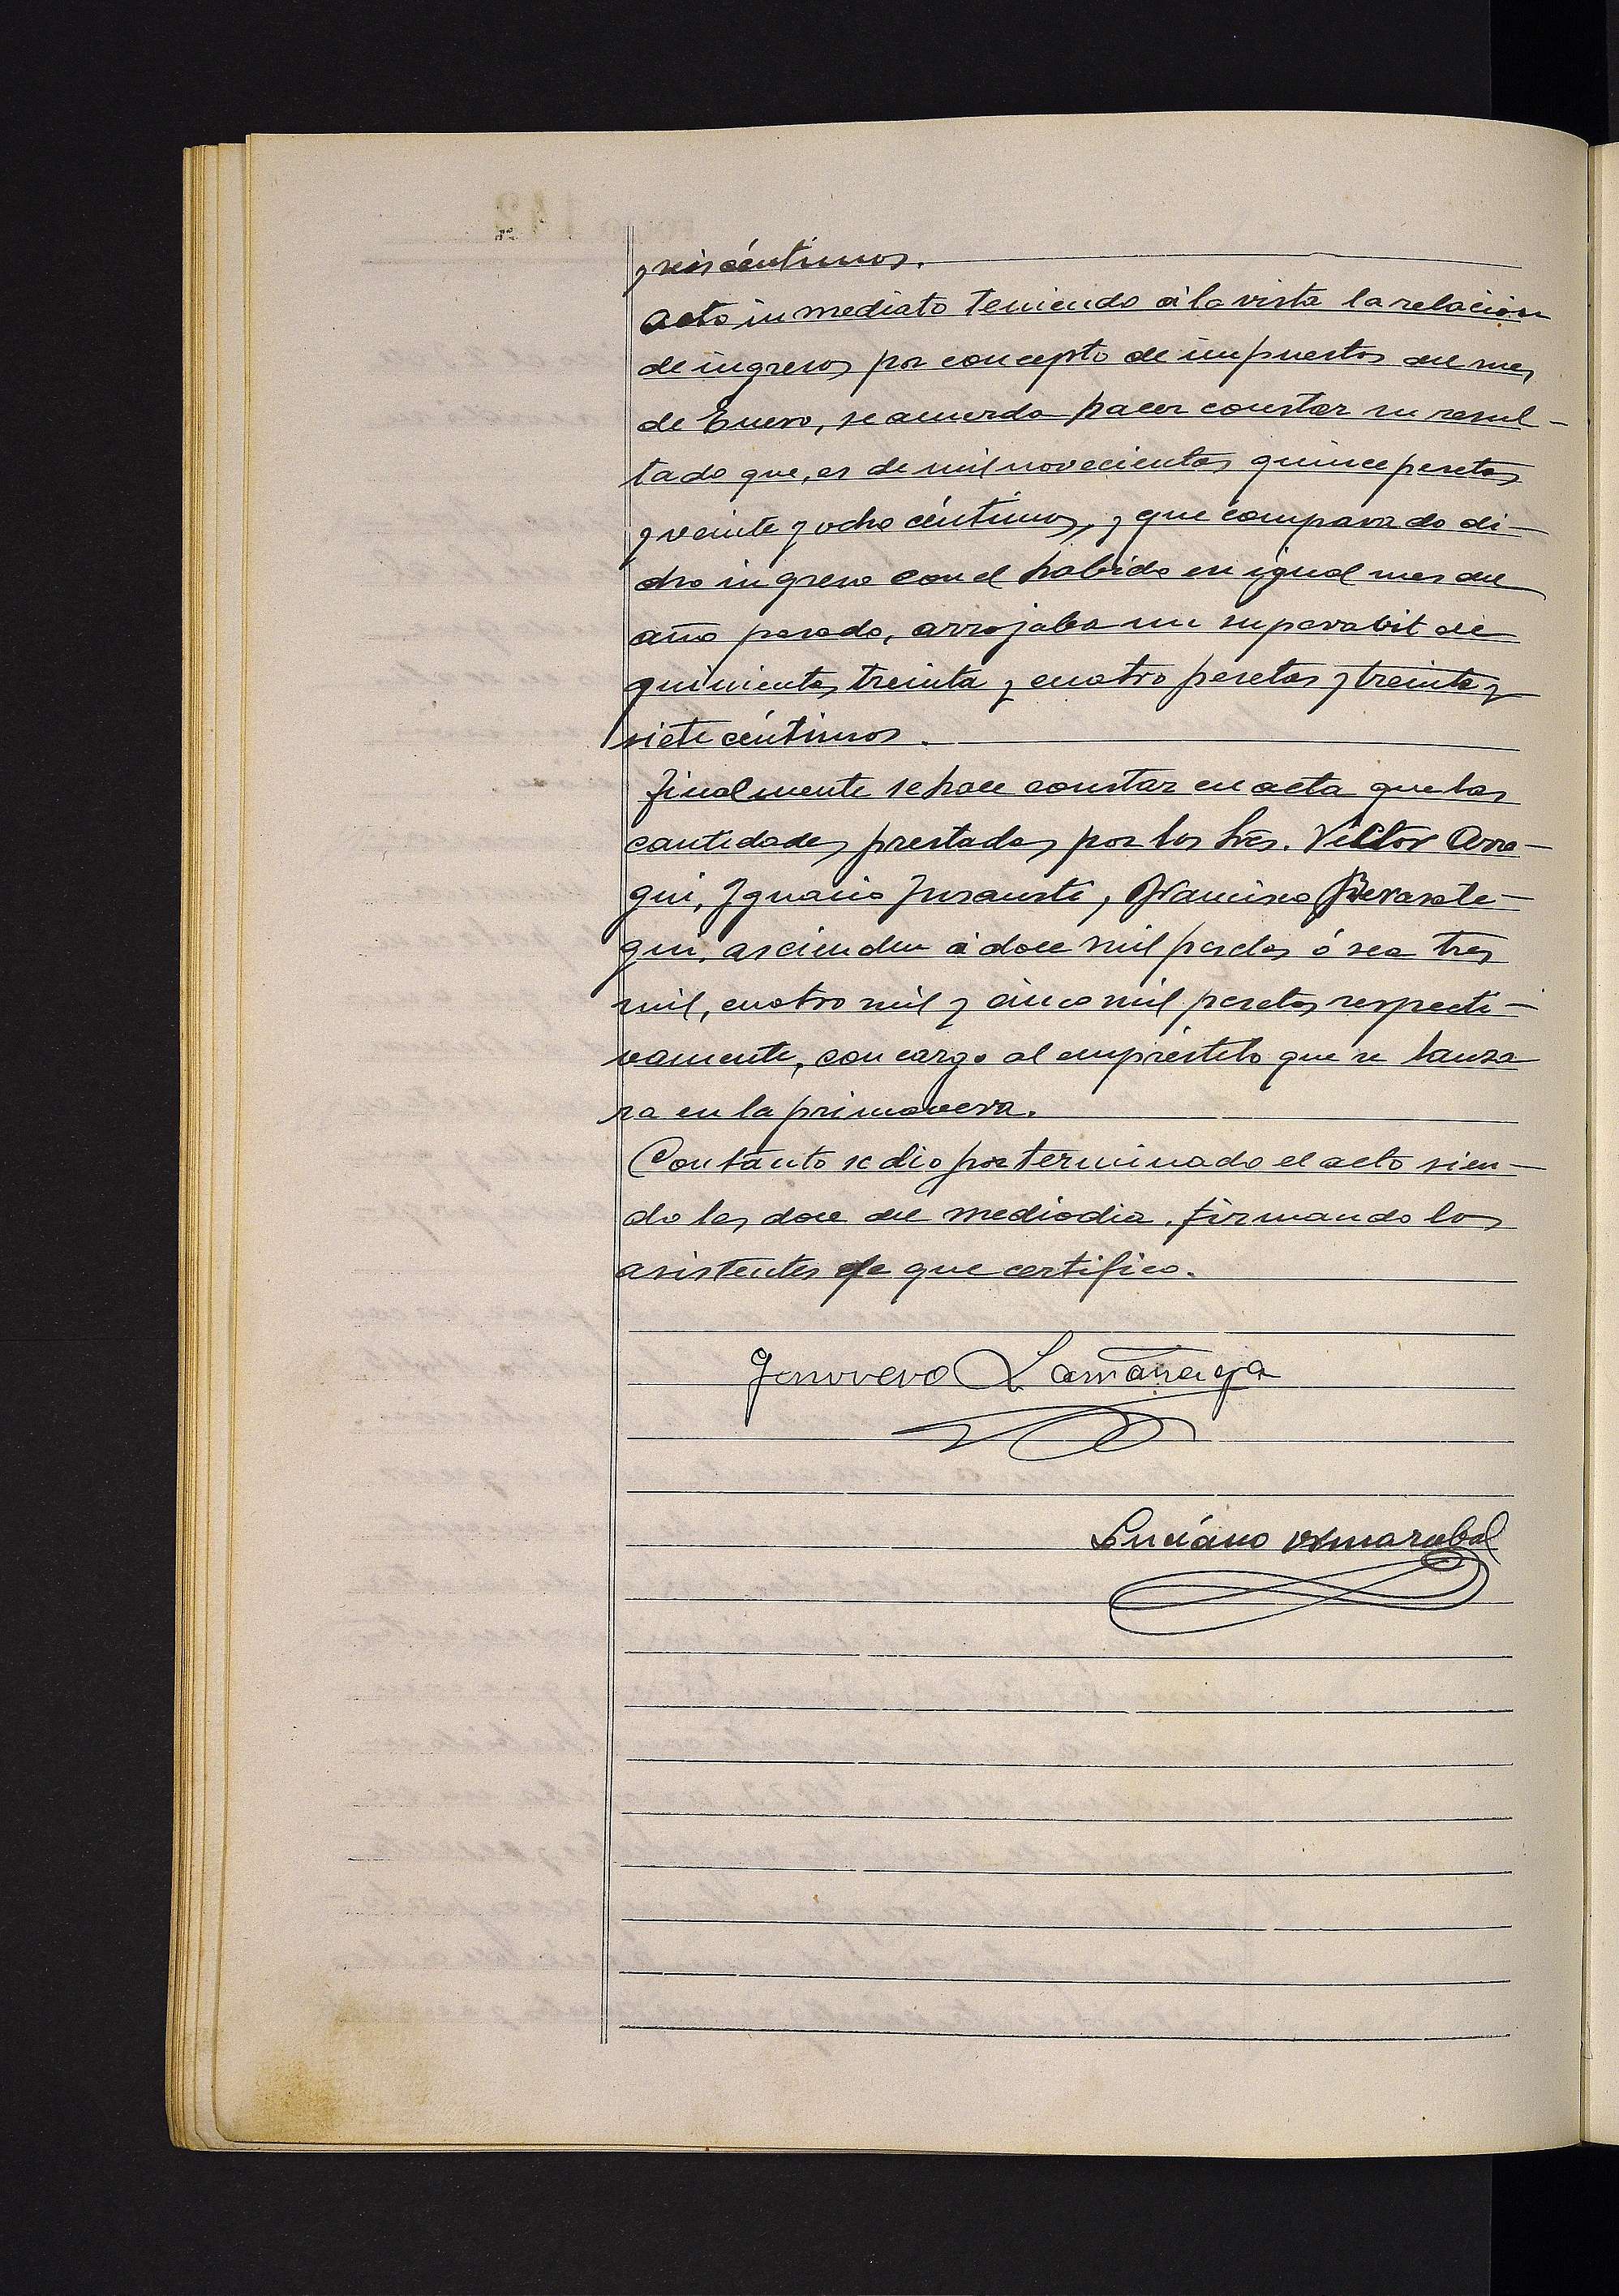 y seis céntimos.
Acto inmediato teniendo á la vista la relación
de ingresos por concepto de impuestos del mes
de Enero, se acuerda hacer constar su resul-
tado que, es de mil novecientas quince pesetas
y veinte y ocho céntimos, y que comparado di-
cho ingreso con el habido en igual mes del
año pasado, arrojaba un superabit de
quinientas treinta y cuatro pesetas y treinta y
siete céntimos.
Finalmente se hace constar en acta que las
cantidades prestadas por los Srs. Victor Arre-
gui, Ignacio Inzausti, Francisco
gui, ascienden á doce mil pesetas ó sea tres
mil, cuatro mil y cinco mil pesetas respecti-
vamente, con cargo al empréstito que se lanza
ra en la primavera.
Con tanto se dio por terminado el acto sien-
do las doce del mediodia. firmando los
asistentes de que certifico.
Genovevo Lamariaga
Luciano